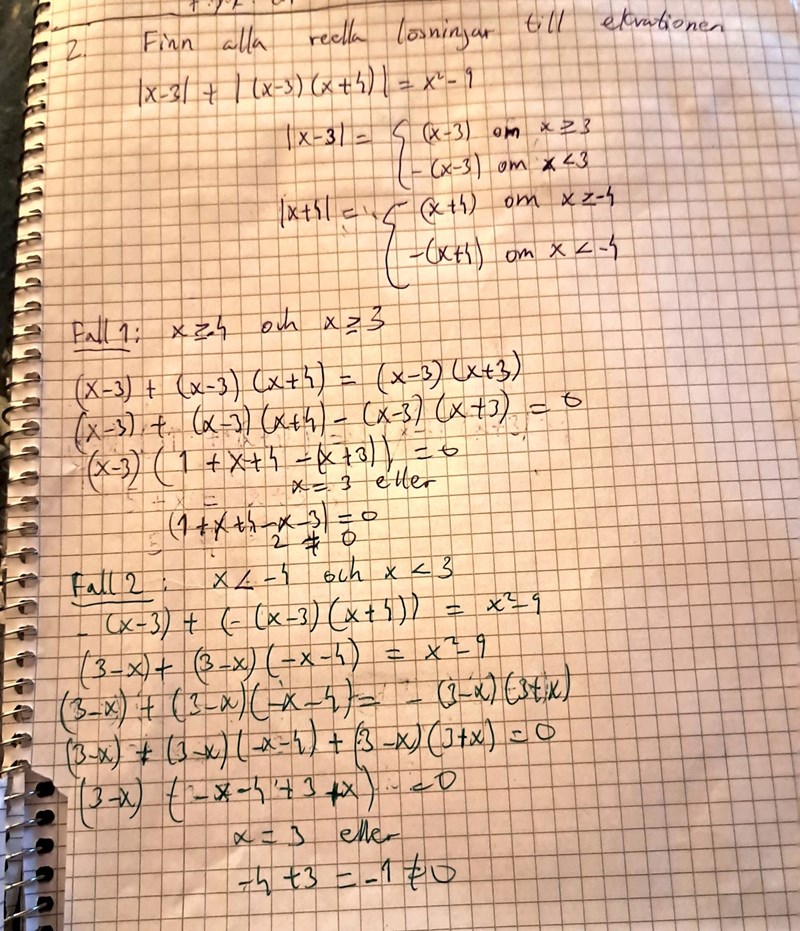 2. Finn alla reella lösningar till ekvationen
|x-3| + |(x-3)(x+4)| = x²-9
|x-3| = { (x-3) om x≥3
-(x-3) om x<3
|x+4| = { (x+4) om x≥-4
-(x+4) om x<-4
Fall 1: x≥-4 och x≥3
(x-3) + (x-3)(x+4) = (x-3)(x+3)
(x-3) + (x-3)(x+4) - (x-3)(x+3) = 0
(x-3)(1+x+4-(x+3)) = 0
x=3 eller
(1+x+4-x-3)=0
2 ≠ 0
Fall 2: x<-4 och x<3
-(x-3) + (-(x-3)(x+4)) = x²-9
(3-x) + (3-x)(-x-4) = x²-9
(3-x) + (3-x)(-x-4) = -(3-x)(3+x)
(3-x) + (3-x)(-x-4) + (3-x)(3+x) = 0
(3-x)(-x-4+3+x) = 0
x=3 eller
-4+3 = -1 ≠ 0